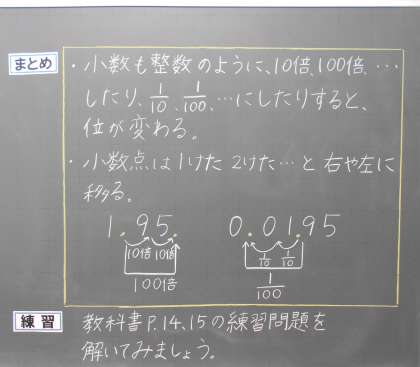 まとめ
・小数も整数のように、10倍、100倍、…
したり、1/10、1/100、…にしたりすると、
位が変わる。
・小数点は1けた 2けた…と 右や左に
移る。
1.95. 0.01.95
10倍 10倍 1/10 1/10
100倍 1/100
練習 教科書P.14、15の練習問題を
解いてみましょう。